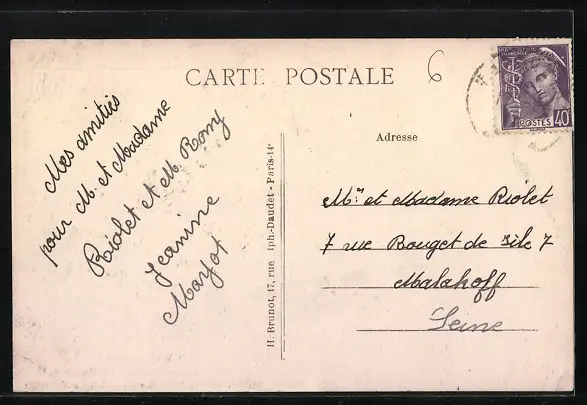 CARTE POSTALE
6
POSTES 40c
Adresse
Mes amitiés
pour M. et Madame
Riolet et M. Romy
Jeanine
Mayot
H. Brunot, 17, rue Iph.-Daudet - Paris-14e
Mr et Madame Riolet
7 rue Bouget de Lile 7
Malakoff
Seine